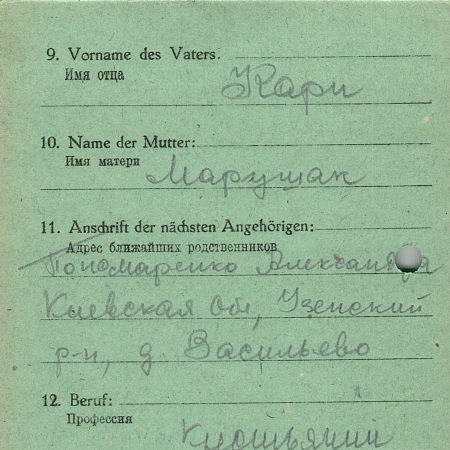 9. Vorname des Vaters.
Имя отца
Карп
10. Name der Mutter:
Имя матери
Марушак
11. Anschrift der nächsten Angehörigen:
Адрес ближайших родственников
Пономаренко Александра
Киевская Обл, Узенский
р-н, д. Васильево
12. Beruf:
Профессия